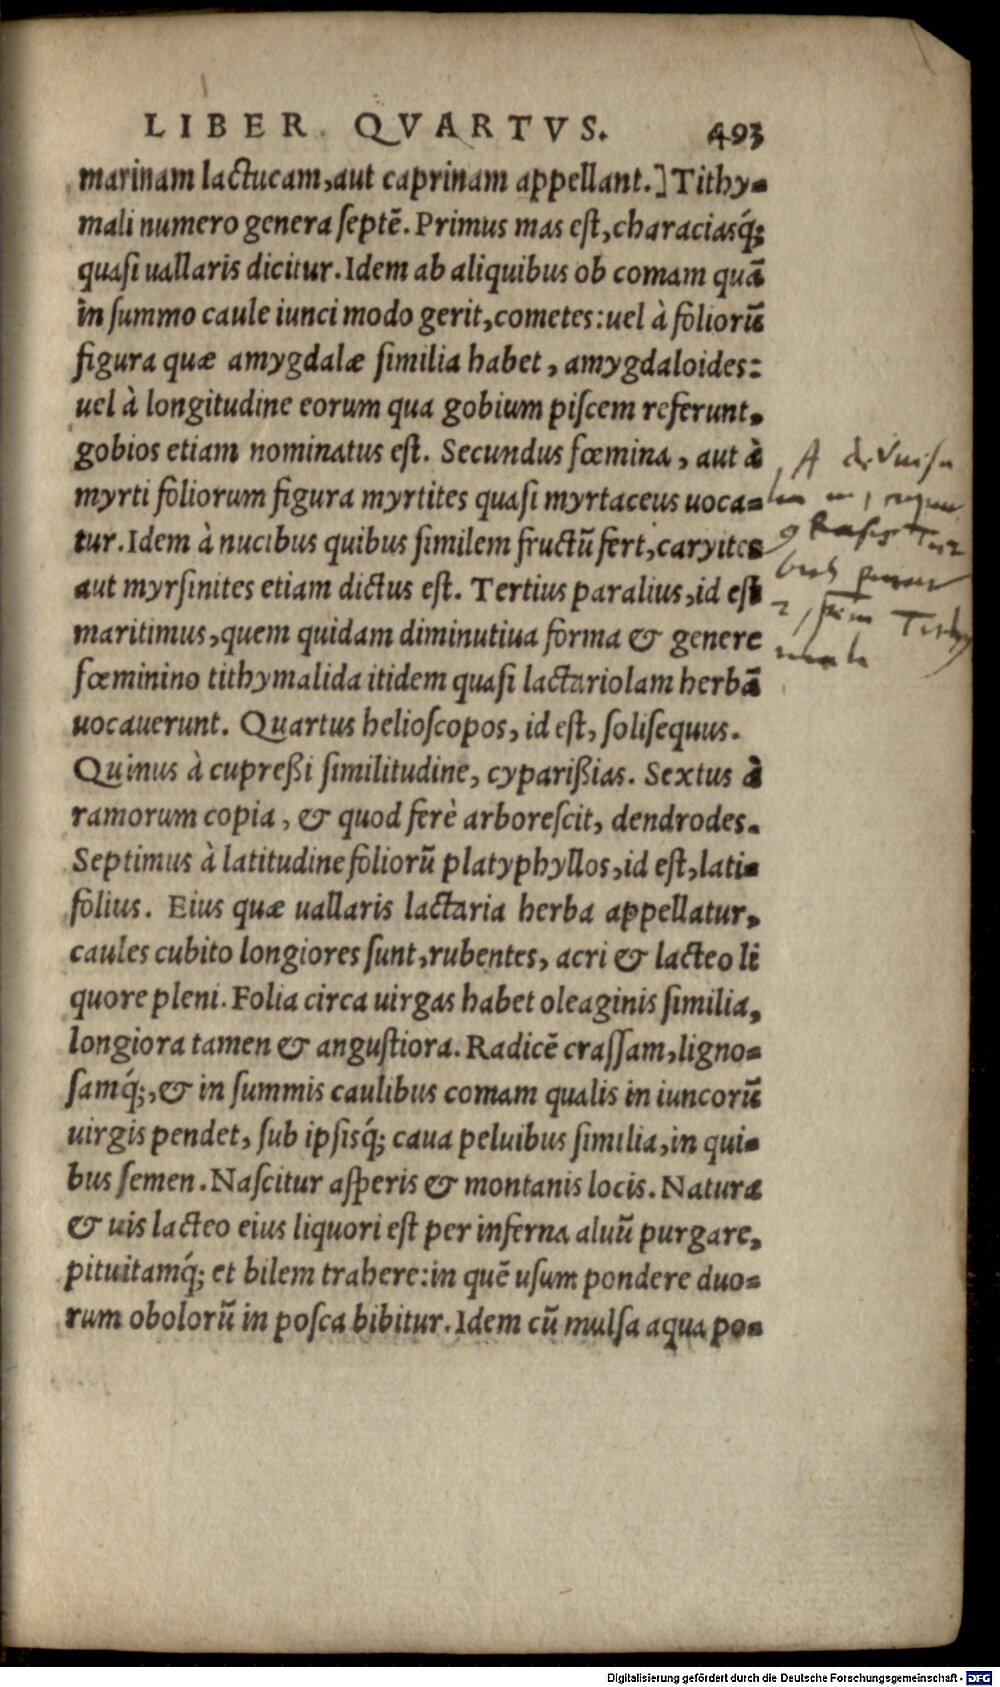 LIBER QVARTVS. 493
marinam lactucam, aut caprinam appellant.] Tithy-
mali numero genera septē. Primus mas est, characiasq́;
quasi uallaris dicitur. Idem ab aliquibus ob comam quā
in summo caule iunci modo gerit, cometes: uel à foliorū
figura quæ amygdalæ similia habet, amygdaloides:
uel à longitudine eorum qua gobium piscem referunt,
gobios etiam nominatus est. Secundus fœmina, aut à
myrti foliorum figura myrtites quasi myrtaceus uoca-
tur. Idem à nucibus quibus similem fructū fert, caryites
aut myrsinites etiam dictus est. Tertius paralius, id est
maritimus, quem quidam diminutiua forma & genere
fœminino tithymalida itidem quasi lactariolam herbā
uocauerunt. Quartus helioscopos, id est, solisequus.
Quinus à cupreßi similitudine, cyparißias. Sextus à
ramorum copia, & quod ferè arborescit, dendrodes.
Septimus à latitudine foliorū platyphyllos, id est, lati-
folius. Eius quæ uallaris lactaria herba appellatur,
caules cubito longiores sunt, rubentes, acri & lacteo li
quore pleni. Folia circa uirgas habet oleaginis similia,
longiora tamen & angustiora. Radicē crassam, ligno-
samq́;, & in summis caulibus comam qualis in iuncorū
uirgis pendet, sub ipsisq́; caua peluibus similia, in qui-
bus semen. Nascitur asperis & montanis locis. Natura
& uis lacteo eius liquori est per inferna aluū purgare,
pituitamq́; et bilem trahere: in quē usum pondere duo-
rum obolorū in posca bibitur. Idem cū mulsa aqua po-
Digitalisierung gefördert durch die Deutsche Forschungsgemeinschaft - DFG